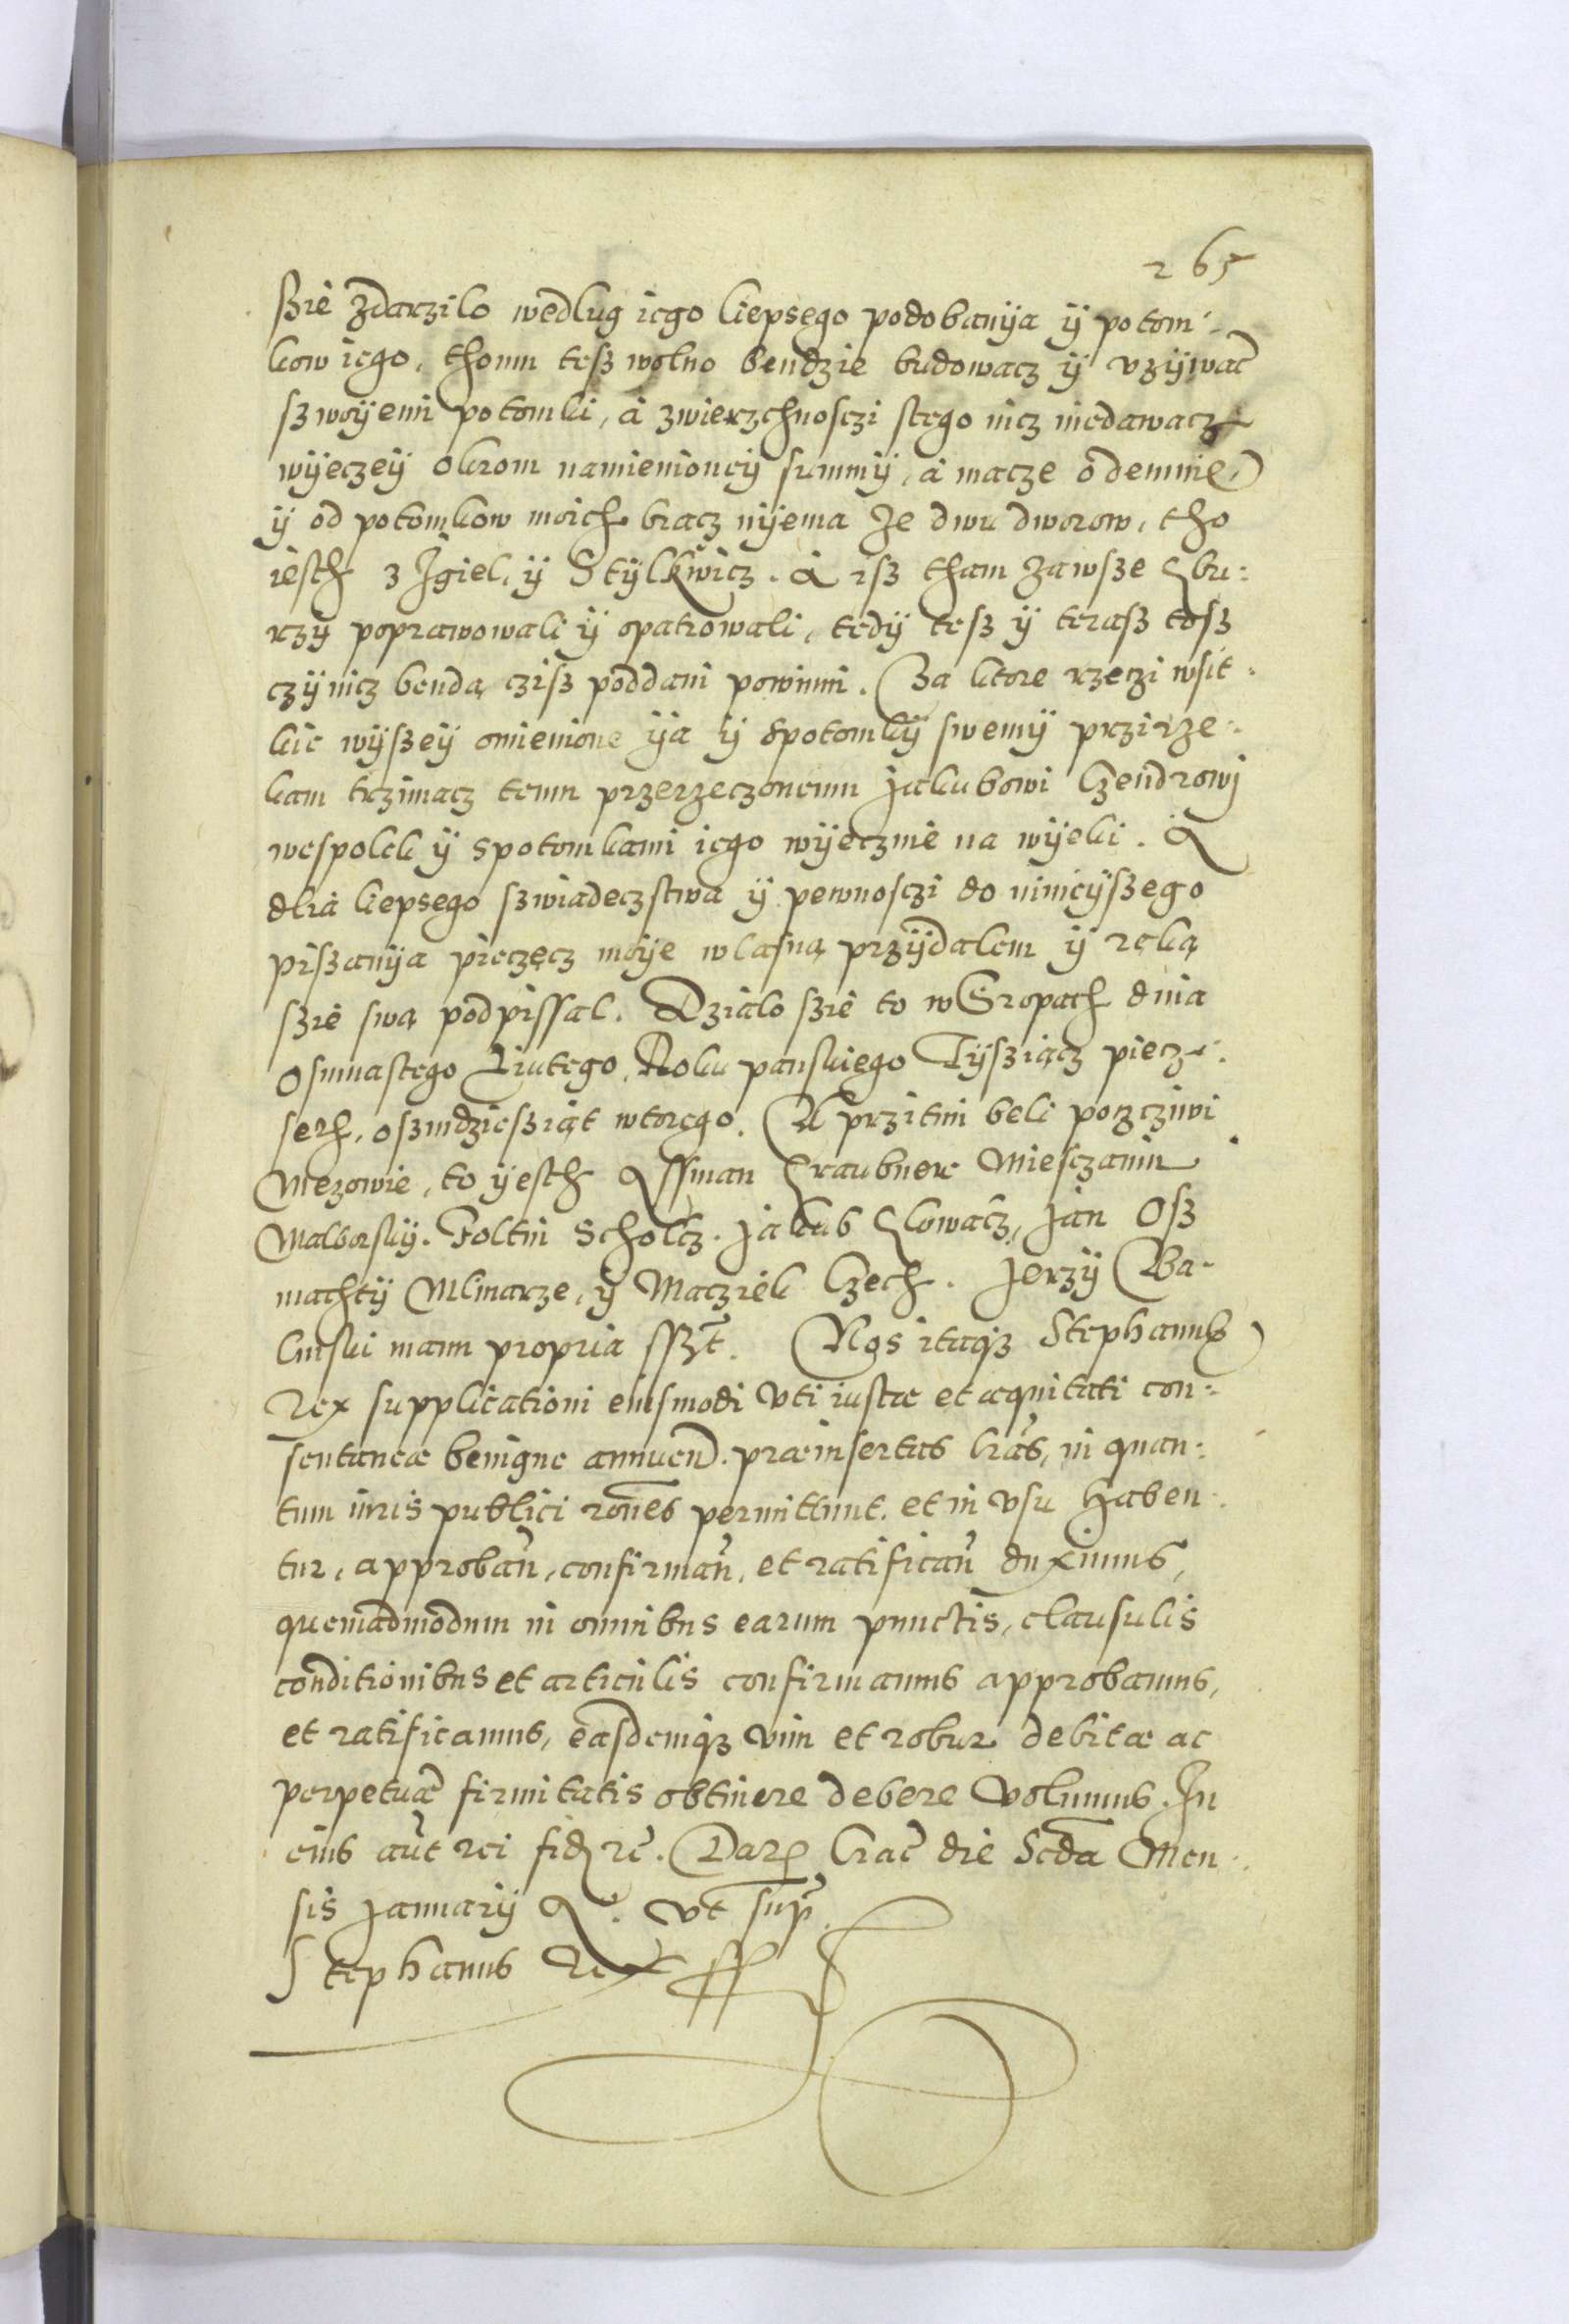 265
szie zdarzilo wedlug iego liepsego podobanÿa ÿ potom-
kow iego, thomu tesz wolno bendzie budowacz ÿ vzÿwac
szwoÿemi potomki, a zwierzchnosczi stego nicz niedawacz
wÿeczeÿ okrom namienioneÿ summÿ, a macze odemnie
ÿ od potomkow moich bracz nÿema ze dwu dworow, tho
iesth z Igiel, ÿ Stÿlkwicz. A isz tham zawsze Sbu-
rzÿ poprawowali ÿ opatrowali, tedÿ tesz ÿ terasz tosz
czÿnicz benda czisz poddani powinni. Za ktore rzeczi wsit-
kie wÿszeÿ omienione ÿa ÿ spotomkÿ swemÿ przirze-
kam trzimacz temu przerzeczonemu Jakubowi Czendrowj
wespolek ÿ spotomkami iego wÿecznie na wÿeki. A
dlia liepsego szwiadeczstwa ÿ pewnosczi do ninieÿszego
piszanÿa pieczęcz moÿe wlasną przÿdalem ÿ ręką
szie swą podpissal. Dzialo szie to w Gropach dnia
Osmnastego Liutego, Roku panskiego Tÿsziącz piecz-
seth, oszmdziesziąt wtorego. A przitim beli poczciwi
Mezowie, to ÿesth Assman Straubner Miesczanin
Malborskÿ. Foltin Scholcz. Jakub Slowacz, Jan Osz
machtÿ Mlinarze, ÿ Macziek Czech. Jerzÿ Ba-
linski manu propria sszt. Nos itaqz Stephanus
Rex supplicationi eiusmodi vti iustæ et æquitati con-
sentaneæ benigne annuend. præinsertas lras, in quan-
tum iuris publici rones permittunt, et in vsu haben-
tur, approban, confirman, et ratifican duximus,
quemadmodum in omnibus earum punctis, clausulis
conditionibus et articulis confirmamus approbamus,
et ratificamus, easdemqz vim et robur debitæ ac
perpetuæ firmitatis obtinere debere volumus. In
cuius aut rei fid rc. Datt Crac die Scda Men-
sis Januarÿ A. vt sup.
Stephanus Rex